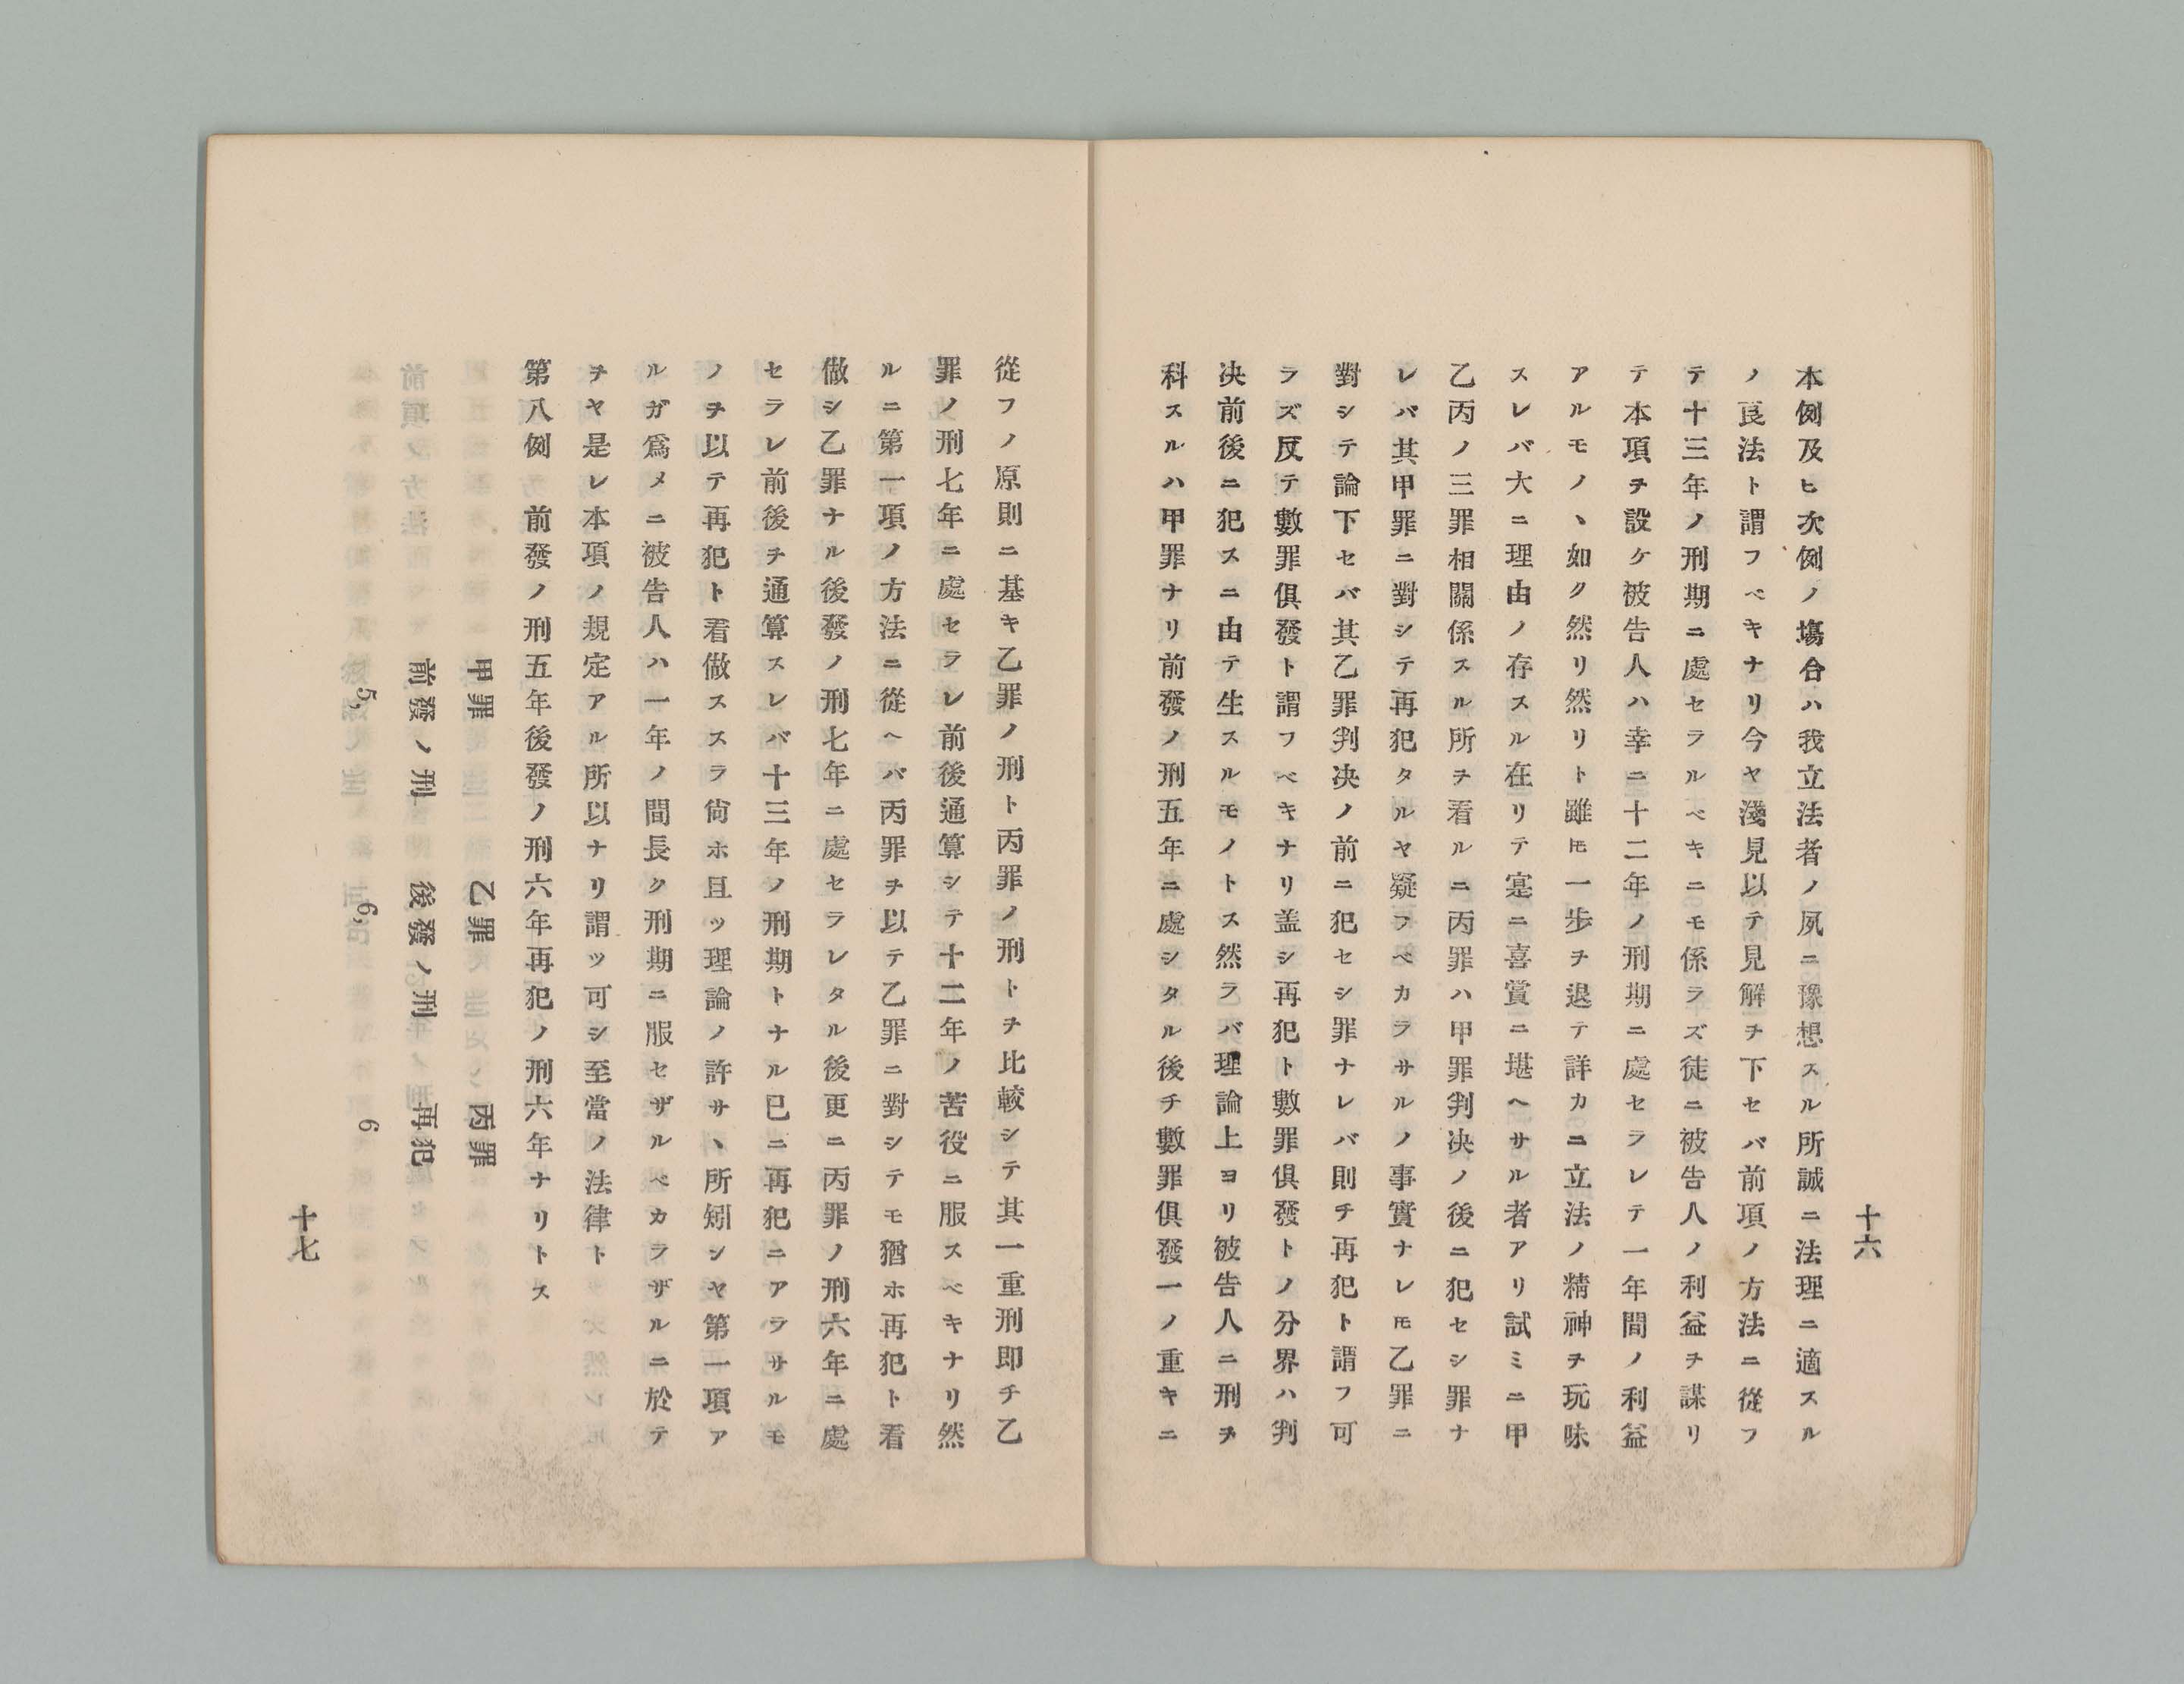 十六
本例及ヒ次例ノ塲合ハ我立法者ノ夙ニ豫想スル所誠ニ法理ニ適スル
ノ良法ト謂フベキナリ今ヤ淺見以テ見解ヲ下セバ前項ノ方法ニ從フ
テ十三年ノ刑期ニ處セラルベキニモ係ラズ徒ニ被告人ノ利益ヲ謀リ
テ本項ヲ設ケ被告人ハ幸ニ十二年ノ刑期ニ處セラレテ一年間ノ利益
アルモノヽ如ク然リ然リト雖𪜈一歩ヲ退テ詳カニ立法ノ精神ヲ玩味
スレバ大ニ理由ノ存スル在リテ寔ニ喜賞ニ堪ヘサル者アリ試ミニ甲
乙丙ノ三罪相關係スル所ヲ看ルニ丙罪ハ甲罪判决ノ後ニ犯セシ罪ナ
レバ其甲罪ニ對シテ再犯タルヤ疑フベカラサルノ事實ナレ𪜈乙罪ニ
對シテ論下セバ其乙罪判决ノ前ニ犯セシ罪ナレバ則チ再犯ト謂フ可
ラズ反テ數罪俱發ト謂フベキナリ盖シ再犯ト數罪俱發トノ分界ハ判
决前後ニ犯スニ由テ生スルモノトス然ラバ理論上ヨリ被告人ニ刑ヲ
科スルハ甲罪ナリ前發ノ刑五年ニ處シタル後チ數罪俱發一ノ重キニ
從フノ原則ニ基キ乙罪ノ刑ト丙罪ノ刑トヲ比較シテ其一重刑即チ乙
罪ノ刑七年ニ處セラレ前後通算シテ十二年ノ苦役ニ服スベキナリ然
ルニ第一項ノ方法ニ從ヘバ丙罪ヲ以テ乙罪ニ對シテモ猶ホ再犯ト看
做シ乙罪ナル後發ノ刑七年ニ處セラレタル後更ニ丙罪ノ刑六年ニ處
セラレ前後ヲ通算スレバ十三年ノ刑期トナル已ニ再犯ニアラサルモ
ノヲ以テ再犯ト看做ススラ尙ホ且ツ理論ノ許サヽ所矧シヤ第一項ア
ルガ爲メニ被告人ハ一年ノ間長ク刑期ニ服セザルベカラザルニ於テ
ヲヤ是レ本項ノ規定アル所以ナリ謂ツ可シ至當ノ法律ト
第八例 前發ノ刑五年後發ノ刑六年再犯ノ刑六年ナリトス
甲罪 乙罪 丙罪
前發ノ刑 後發ノ刑 再犯
5, 6, 6
十七